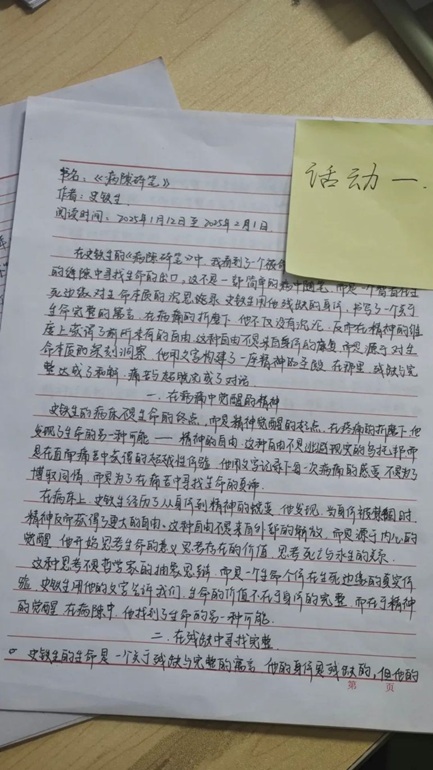 活动一.
书名：《病隙碎笔》
作者：史铁生
阅读时间：2025年1月12日至2025年2月1日
在史铁生的《病隙碎笔》中，我看到了一个被
的缝隙中寻找生命的出口。这不是一部简单的病中随笔，而是一个
死边缘对生命本质的沉思 史铁生用他残缺的身体，书写了一个关于
生命完整的寓言 在病痛的折磨下，他不仅没有沉沦，反而在精神的维
度上获得了前所未有的自由 这种自由不是来自身体的康复，而是源于对生
命本质的深刻洞察 他用文字构建了一座精神的 在那里，残缺与完
整达成了和解，痛苦与超脱完成了对话
一.在病痛中觉醒的精神
史铁生的病床不是生命的终点，而是精神觉醒的起点 在疾病的折磨下，他
发现了生命的另一种可能——精神的自由 这种自由不是逃避现实的乌托邦，而
是在直面痛苦中获得的超越性体验 他用文字记录下每一次病痛的感受，不是为了
博取同情，而是为了在痛苦中寻找生命的真谛
在病床上，史铁生经历了从身体到精神的蜕变 他发现，当身体被禁锢时
精神反而获得了更大的自由 这种自由不是来自外部的解放，而是源于内心的
觉醒 他开始思考生命的意义 思考存在的价值 思考死亡与永生的关系
这种思考不是哲学家的抽象思辨，而是一个生命个体在生死边缘的真实体
验 史铁生用他的文字告诉我们，生命的价值不在于身体的完整，而在于精神
的觉醒 在病隙中，他找到了生命的另一种可能
二.在残缺中寻找完整
史铁生的生命是一个关于残缺与完整的寓言 他的身体是残缺的，但他的
第 页